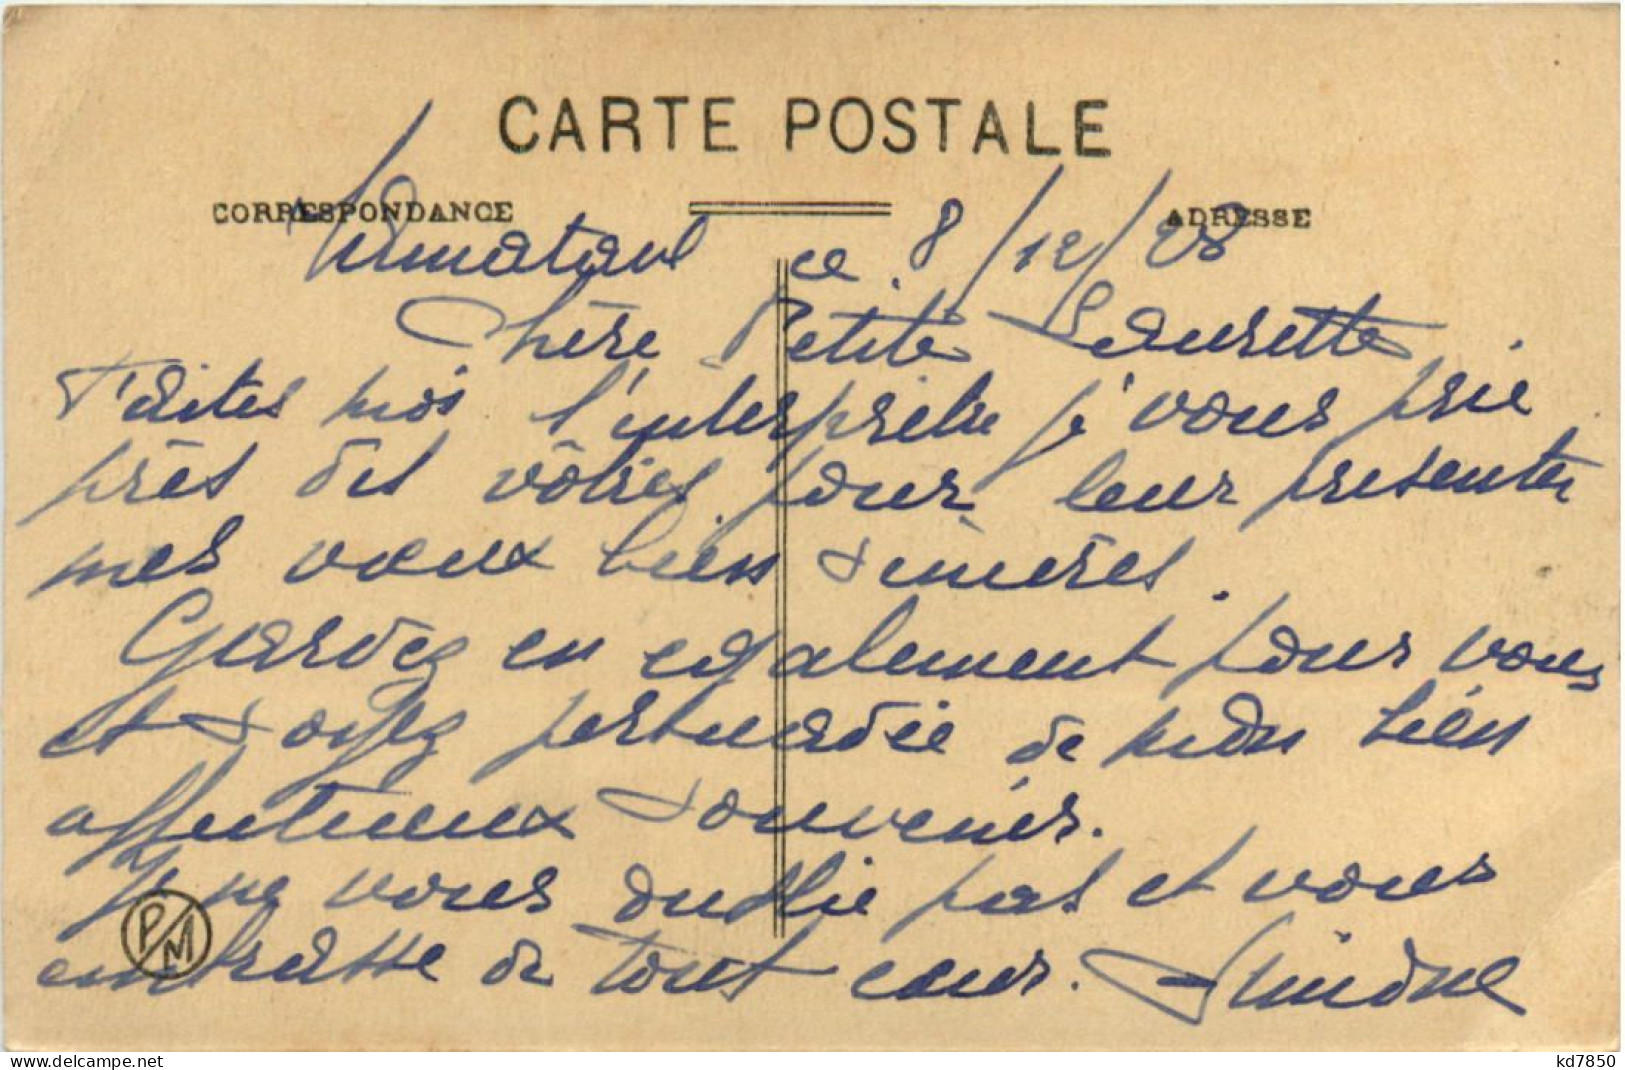 CARTE POSTALE
CORRESPONDANCE
ADRESSE
ce 8/12/28
Chère Petite Laurette
Faites moi l'interprète je vous prie
près des vôtres pour leur présenter
mes vœux bien sincères.
Gardez en également pour vous
et soyez persuadée de mon bien
affectueux souvenir.
Je ne vous oublie pas et vous
embrasse de tout cœur. Simone
P/M
www.delcampe.net
kd7850